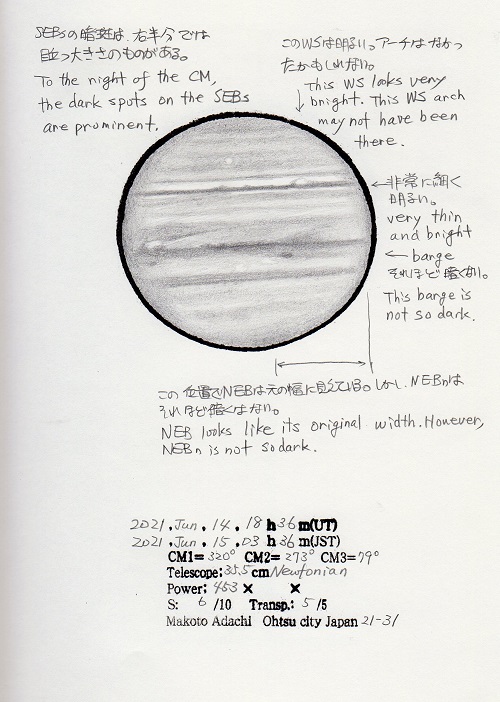 SEBsの暗斑は、右半分では
目立つ大きさのものがある。
To the right of the CM,
the dark spots on the SEBs
are prominent.
このWSは明るい。アーチはなかっ
たかもしれない。
This WS looks very
bright. This WS arch
may not have been
there.
非常に細く
明るい。
very thin
and bright
barge
それほど暗くない。
This barge is
not so dark.
この位置でNEBは元の幅に見えている。しかし、NEBnは
それほど暗くはない。
NEB looks like its original width. However,
NEBn is not so dark.
2021, Jun, 14, 18 h 36 m(UT)
2021, Jun, 15, 03 h 36 m(JST)
CM1= 320° CM2= 273° CM3= 79°
Telescope: 35.5 cm Newtonian
Power: 453 × ×
S: 6 /10 Transp.: 5 /5
Makoto Adachi Ohtsu city Japan 21-31